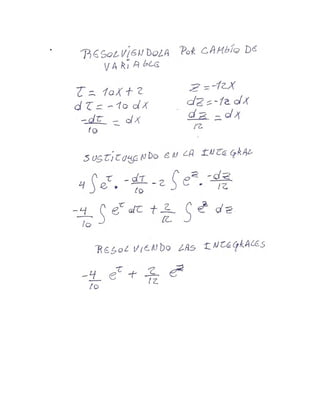 RESOLVIENDOLA POR CAMBIO DE
VARIABLE
τ = 10x + 2
dτ = -10 dx
-dτ/10 = dx
z = -12x
dz = -12 dx
dz/12 = dx
SUSTITUYENDO EN LA INTEGRAL
4 ∫ e^τ . -dτ/10 - 2 ∫ e^z . -dz/12
-4/10 ∫ e^τ dτ + 2/12 ∫ e^z dz
RESOLVIENDO LAS INTEGRALES
-4/10 e^τ + 2/12 e^z